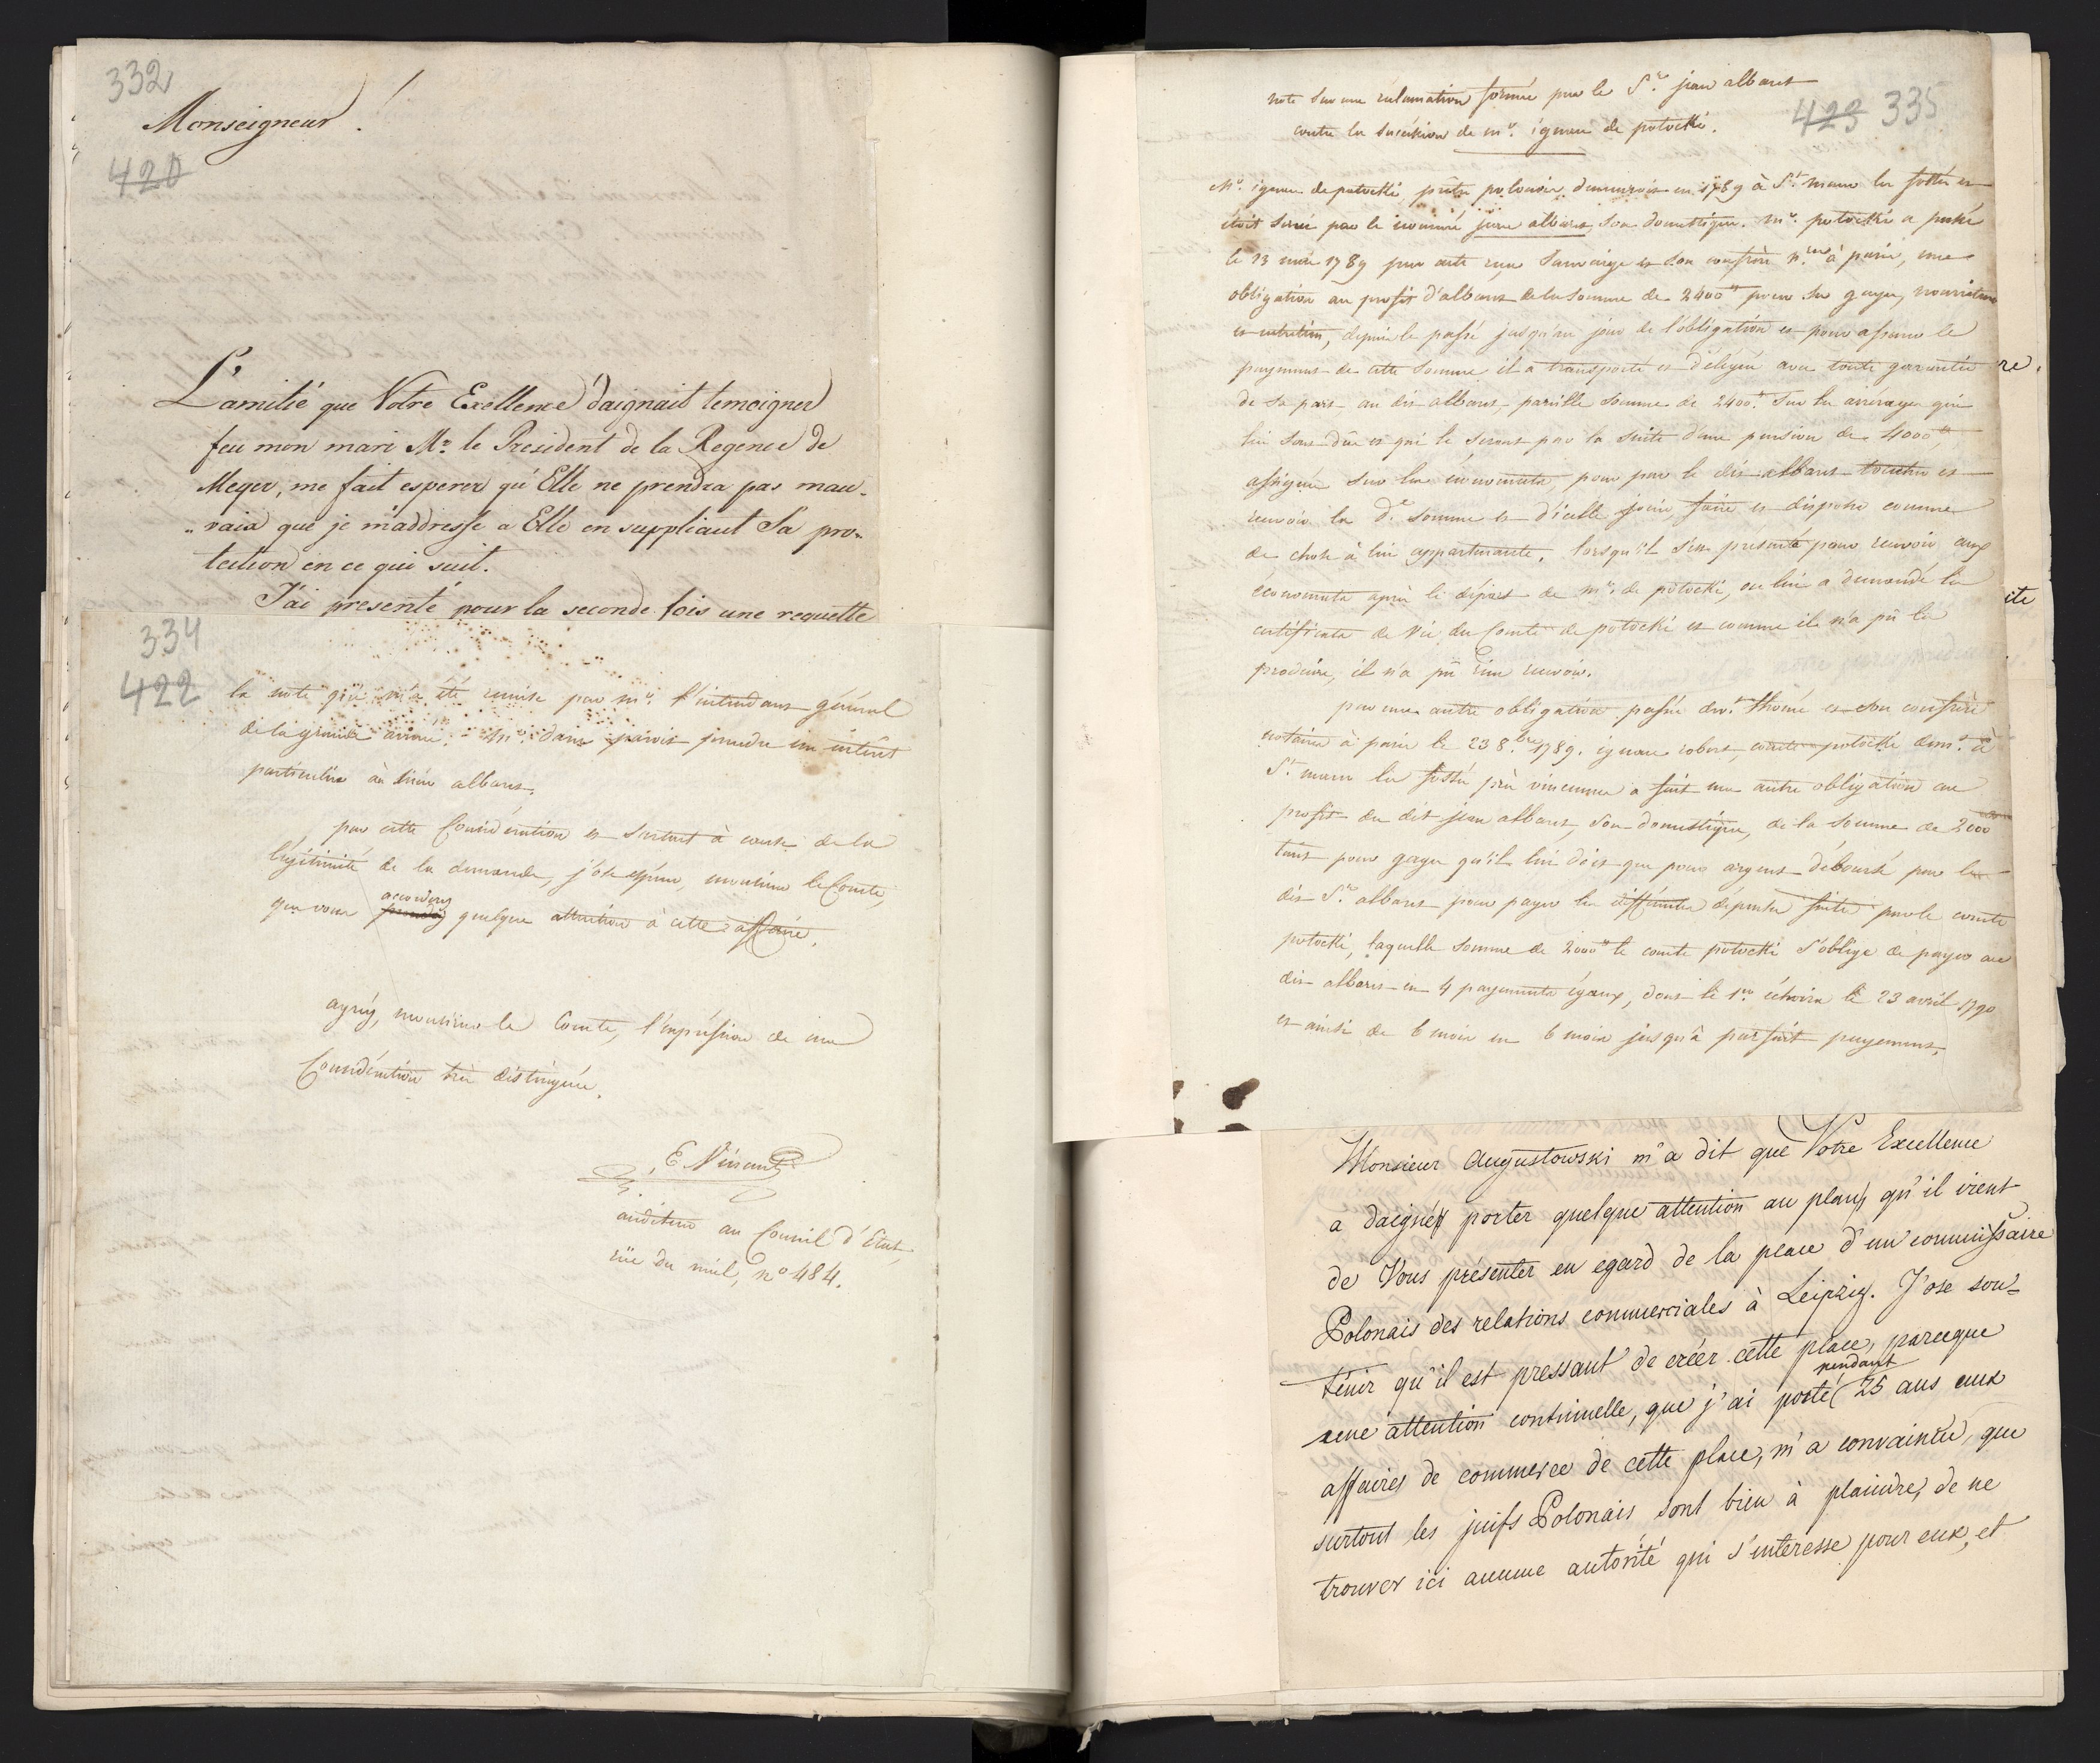 332
Monseigneur !
420
L'amitié que Votre Exellence daignait temoigner
feu mon mari Mr. le President de la Regence de
Meyer, me fait esperer qu'Elle ne prendra pas mau-
vais que je m'addresse a Elle en suppliant Sa pro-
tection en ce qui suit.
J'ai presenté pour la seconde fois une requette
334
422
la note qui m'a été remise par mr. l'intendant général
de la grande armée. mr. daru paroit prendre un intérêt
particulier au sieur albaret.
par cette Considération et surtout à cause de la
légitimité de la demande, j'ose espérer, monsieur le Comte,
accordiez
que vous prendrez quelque attention à cette affaire.
agréez, monsieur le Comte, l'expression de ma
Considération très distinguée.
E Vincent
auditeur au Conseil d'état,
rüe du miel, no 484.
note sur une reclamation formée par le Sr. jean albaret
contre la succession de mr. ignace de potocki.
423 335
Mr. ignace de potocki prêtre polonois, demeuroit en 1789 à St. maur les fossés et
étoit servi par le nommé jean albaret, son domestique. mr. potocki a passé
le 13 mai 1789 par acte reçu et son confrère nres à paris, une
obligation au profit d'albaret de la somme de 2400 tt pour ses gages, nourriture
et entretien, depuis le passé jusqu'au jour de l'obligation et pour assurer le
payement de cette somme il a transporté et délégué avec toute garantie
de sa part au dit albaret, pareille somme de 2400 tt sur les arrerages qui
lui sont dûs et qui le seront par la suite d'une pension de 4000 tt,
assignée sur les économats, pour par le dit albaret toucher et
recevoir la de. somme et d'icelle jouir, faire et disposer comme
de chose à lui appartenante. lorsqu'il s'est presenté pour recevoir aux
économats après le départ de mr. de potocki, on lui a demandé les
certificats de vie du Comte de potocki et comme il n'a pû les
produire, il n'a pû rien recevoir.
par une autre obligation passée devt. thomé et son confrère
notaires à paris le 23 8.bre 1789. ignace robert, comte potocki demt. à
St. maur les fossés près vincennes a fait une autre obligation au
profit du dit jean albaret, son domestique, de la somme de 2000
tant pour gages qu'il lui doit que pour argent déboursé par le
dit Sr. albaret pour payer les différentes dépenses faites par le comte
potocki, laquelle somme de 2000 tt le comte potocki s'oblige de payer au
dit albaret en 4 payements égaux, dont le 1er. échoira le 23 avril 1790
et ainsi de 6 mois en 6 mois jusqu'à parfait payement.
re.
ite
Monsieur Augustowski m'a dit que Votre Excellence
a daigné porter quelque attention au plan, qu'il vient
de Vous présenter en egard de la place d'un commissaire
Polonais des relations commerciales à Leipzig. J'ose sou-
tenir qu'il est pressant de créer cette place, parceque
pendant
une attention continuelle, que j'ai porté 25 ans aux
affaires de commerce de cette place, m'a convaincu, que
surtout les juifs Polonais sont bien à plaindre, de ne
trouver ici aucune autorité qui s'interesse pour eux, et